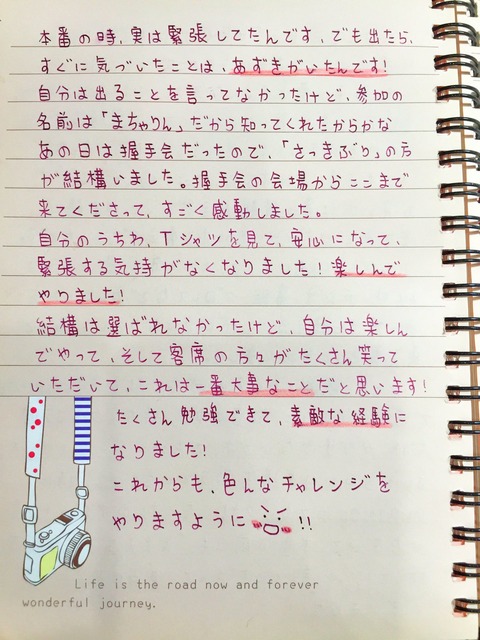 本番の時、実は緊張してたんです、でも出たら、
すぐに気づいたことは、あずきがいたんです!
自分は出ることを言ってなかったけど、参加の
名前は「まちゃりん」だから知ってくれたからかな
あの日は握手会だったので、「さっきぶり」の方
が結構いました。握手会の会場からここまで
来てくださって、すごく感動しました。
自分のうちわ、Tシャツを見て、安心になって、
緊張する気持がなくなりました!楽しんで
やりました!
結構は選ばれなかったけど、自分は楽しん
でやって、そして客席の方々がたくさん笑って
いただいて、これは一番大事なことだと思います!
たくさん勉強できて、素敵な経験に
なりました!
これからも、色んなチャレンジを
やりますように !!
Life is the road now and forever
wonderful journey.